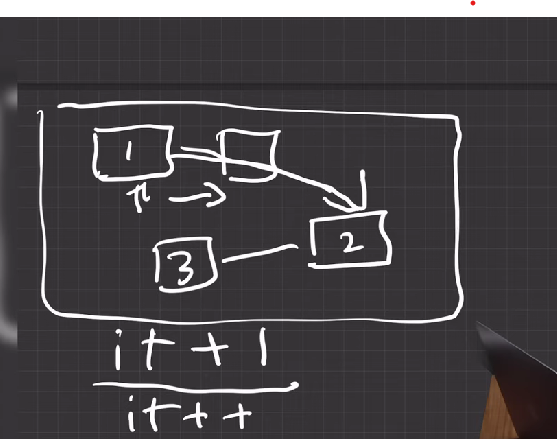 1
2
3
it + 1
it++